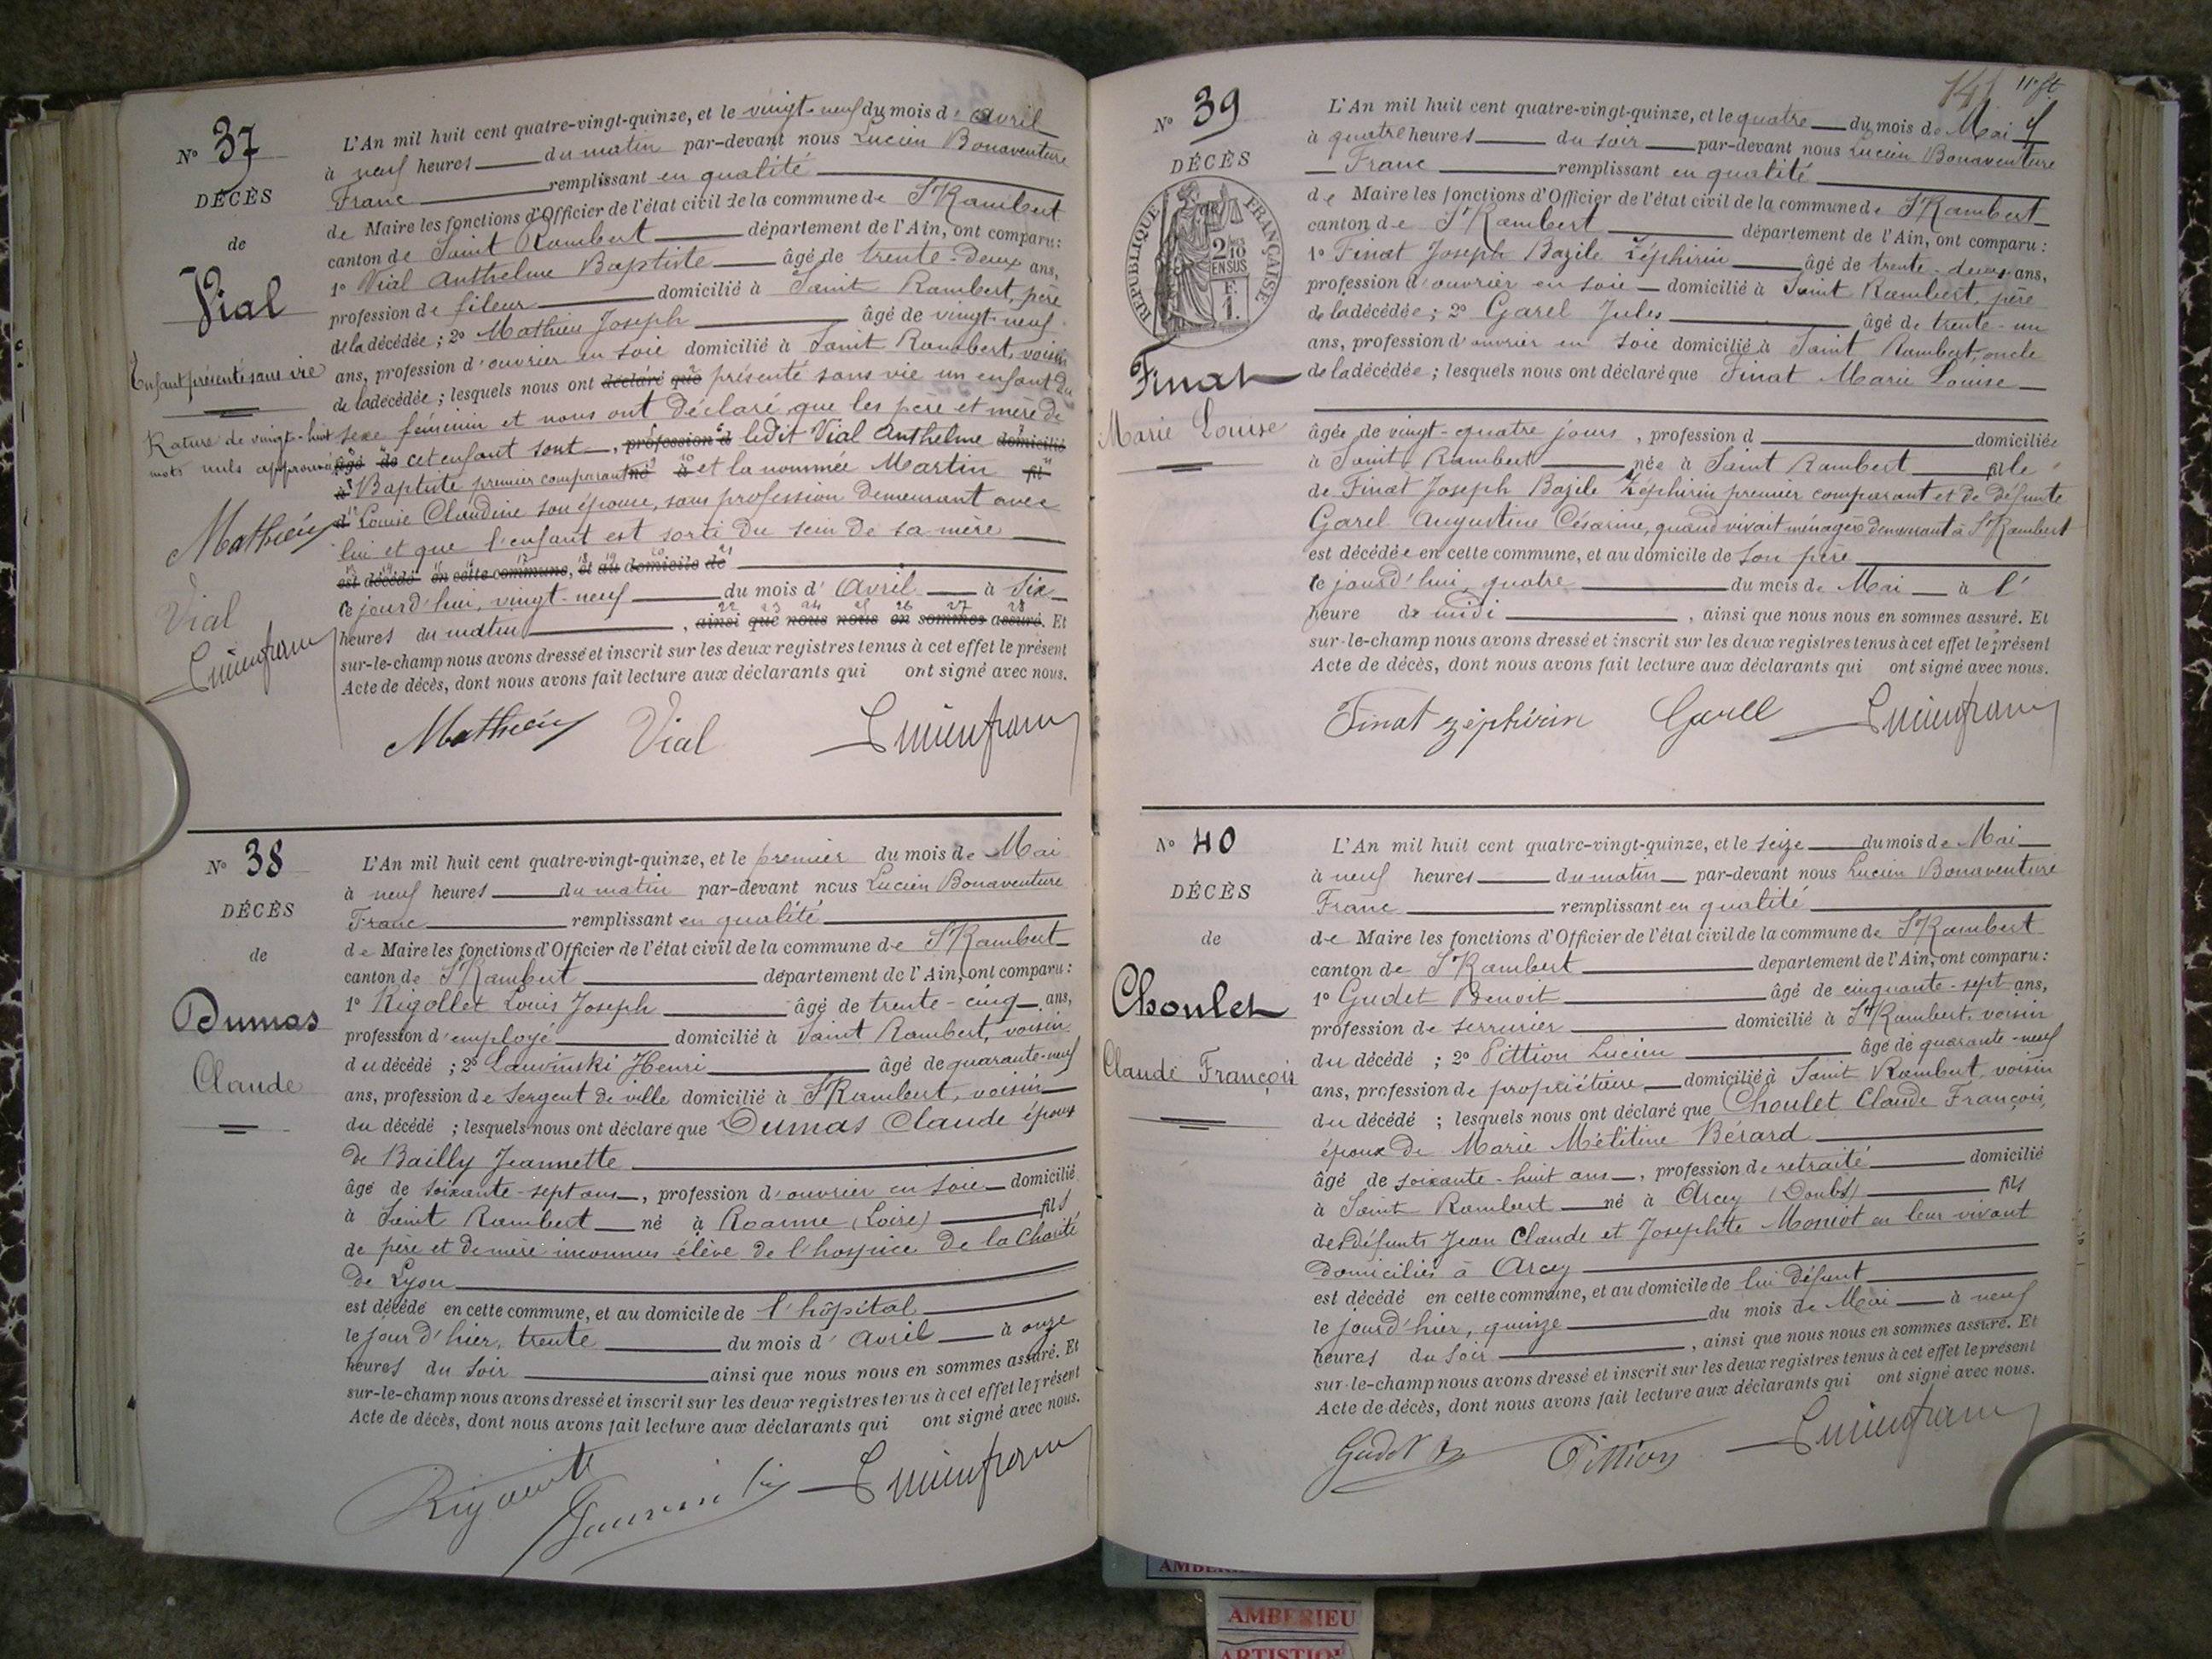 N° 37
DÉCÈS
de
Vial
Enfant présenté sans vie
Rature de vingt-huit
mots nuls approuvé
Mathieu
Vial
L'An mil huit cent quatre-vingt-quinze, et le vingt-neuf du mois d'avril
à neuf heures du matin par-devant nous Lucien Bonaventure
Franc remplissant en qualité
de Maire les fonctions d'Officier de l'état civil de la commune de St Rambert
canton de Saint Rambert département de l'Ain, ont comparu :
1° Vial Anthelme Baptiste âgé de trente-deux ans,
profession de fileur domicilié à Saint Rambert, père
de la décédée ; 2° Mathieu Joseph âgé de vingt-neuf
ans, profession d'ouvrier en soie domicilié à Saint Rambert, voisin
de la décédée ; lesquels nous ont déclaré que présenté sans vie un enfant du
sexe féminin et nous ont déclaré que les père et mère de
âgé de cet enfant sont, profession d ledit Vial Anthelme domicilié
à Baptiste premier comparant né à et la nommée Martin fil
d Louise Claudine son épouse, sans profession demeurant avec
lui et que l'enfant est sorti du sein de sa mère
est décédé en cette commune, et au domicile de
le jourd'hui, vingt-neuf du mois d'Avril à six
heures du matin, ainsi que nous nous en sommes assuré. Et
sur-le-champ nous avons dressé et inscrit sur les deux registres tenus à cet effet le présent
Acte de décès, dont nous avons fait lecture aux déclarants qui ont signé avec nous.
Mathieu Vial Lucien franc
N° 38
DÉCÈS
de
Dumas
Claude
L'An mil huit cent quatre-vingt-quinze, et le premier du mois de Mai
à neuf heures du matin par-devant nous Lucien Bonaventure
Franc remplissant en qualité
de Maire les fonctions d'Officier de l'état civil de la commune de St Rambert
canton de St Rambert département de l'Ain, ont comparu :
1° Rigollet Louis Joseph âgé de trente-cinq ans,
profession d'employé domicilié à Saint Rambert, voisin
du décédé ; 2° Henri âgé de quarante-neuf
ans, profession de sergent de ville domicilié à St Rambert, voisin
du décédé ; lesquels nous ont déclaré que Dumas Claude époux
de Bailly Jeannette
âgé de soixante-sept ans, profession d'ouvrier en soie domicilié
à Saint Rambert né à Roanne (Loire) fils
de père et de mère inconnus élève de l'hospice de la Charité
de Lyon
est décédé en cette commune, et au domicile de l'hôpital
le jour d'hier, trente du mois d'avril à onze
heures du soir ainsi que nous nous en sommes assuré. Et
sur-le-champ nous avons dressé et inscrit sur les deux registres tenus à cet effet le présent
Acte de décès, dont nous avons fait lecture aux déclarants qui ont signé avec nous.
Lucien franc
N° 39
DÉCÈS
RÉPUBLIQUE FRANÇAISE
2/10
EN SUS
F.
1.
Finat
Marie Louise
L'An mil huit cent quatre-vingt-quinze, et le quatre du mois de Mai
à quatre heures du soir par-devant nous Lucien Bonaventure
Franc remplissant en qualité
de Maire les fonctions d'Officier de l'état civil de la commune de St Rambert
canton de St Rambert département de l'Ain, ont comparu :
1° Finat Joseph Bazile Zéphirin âgé de trente-deux ans,
profession d'ouvrier en soie domicilié à Saint Rambert, père
de la décédée ; 2° Garel Jules âgé de trente-un
ans, profession d'ouvrier en soie domicilié à Saint Rambert, oncle
de la décédée ; lesquels nous ont déclaré que Finat Marie Louise
âgée de vingt-quatre jours, profession d domiciliée
à Saint Rambert née à Saint Rambert fille
de Finat Joseph Bazile Zéphirin premier comparant et de défunte
Garel Augustine Césarine, quand vivait ménagère demeurant à St Rambert
est décédée en cette commune, et au domicile de son père
le jourd'hui quatre du mois de Mai à l'
heure de midi, ainsi que nous nous en sommes assuré. Et
sur-le-champ nous avons dressé et inscrit sur les deux registres tenus à cet effet le présent
Acte de décès, dont nous avons fait lecture aux déclarants qui ont signé avec nous.
Finat zéphirin Garel Lucien franc
N° 40
DÉCÈS
de
Choulet
Claude François
L'An mil huit cent quatre-vingt-quinze, et le seize du mois de Mai
à neuf heures du matin par-devant nous Lucien Bonaventure
Franc remplissant en qualité
de Maire les fonctions d'Officier de l'état civil de la commune de St Rambert
canton de St Rambert département de l'Ain, ont comparu :
1° Gudet Benoit âgé de cinquante-sept ans,
profession de serrurier domicilié à St Rambert, voisin
du décédé ; 2° Pittion Lucien âgé de quarante-neuf
ans, profession de propriétaire domicilié à Saint Rambert, voisin
du décédé ; lesquels nous ont déclaré que Choulet Claude François,
époux de Marie Mélitine Bérard
âgé de soixante-huit ans, profession de retraité domicilié
à Saint Rambert né à Arcey (Doubs) fils
des défunts Jean Claude et Josephte Moniot en leur vivant
domiciliés à Arcey
est décédé en cette commune, et au domicile de lui défunt
le jour d'hier, quinze du mois de Mai à neuf
heures du soir, ainsi que nous nous en sommes assuré. Et
sur-le-champ nous avons dressé et inscrit sur les deux registres tenus à cet effet le présent
Acte de décès, dont nous avons fait lecture aux déclarants qui ont signé avec nous.
Pittion Lucien franc
AMBERIEU